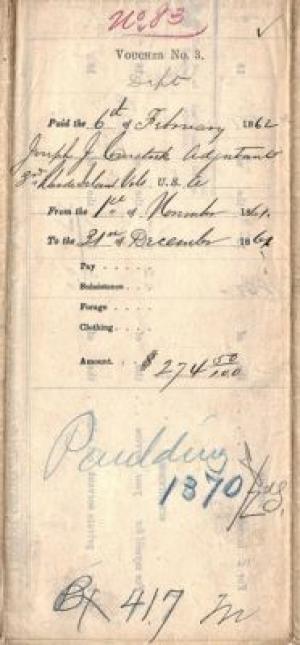 No. 83
VOUCHER No. 3.
Dept
Paid the 6th of February 1862
Joseph J. Comstock Adjutant
3rd Rhode Island Vols U.S.
From the 1st of November 1861.
To the 31st of December 1861
Pay . . . .
Subsistence . . .
Forage . . . .
Clothing . . . .
Amount. . . $ 274 50/100
Paulding
1370
417 M